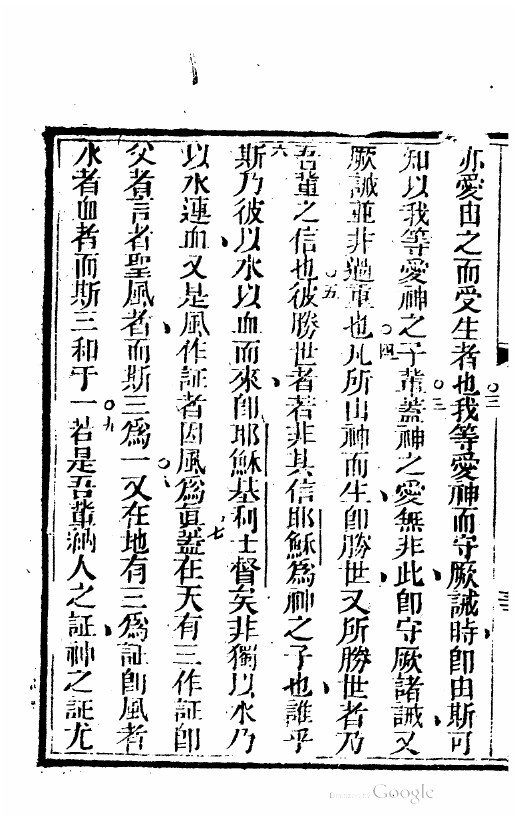 亦愛由之而受生者也○二我等愛神而守厥誡時卽由斯可
知以我等愛神之子輩○三蓋神之愛無非此卽守厥諸誡又
厥誡並非過重也○四凡所由神而生卽勝世又所勝世者乃
吾輩之信也○五彼勝世者若非其信耶穌爲神之子也誰乎
六斯乃彼以水以血而來卽耶穌基利士督矣非獨以水乃
以水連血又是風作証者因風爲眞七蓋在天有三作証卽
父者言者聖風者而斯三爲一○八又在地有三爲証卽風者
水者血者而斯三和于一○九若是吾輩納人之証神之証尤
Digitized by Google